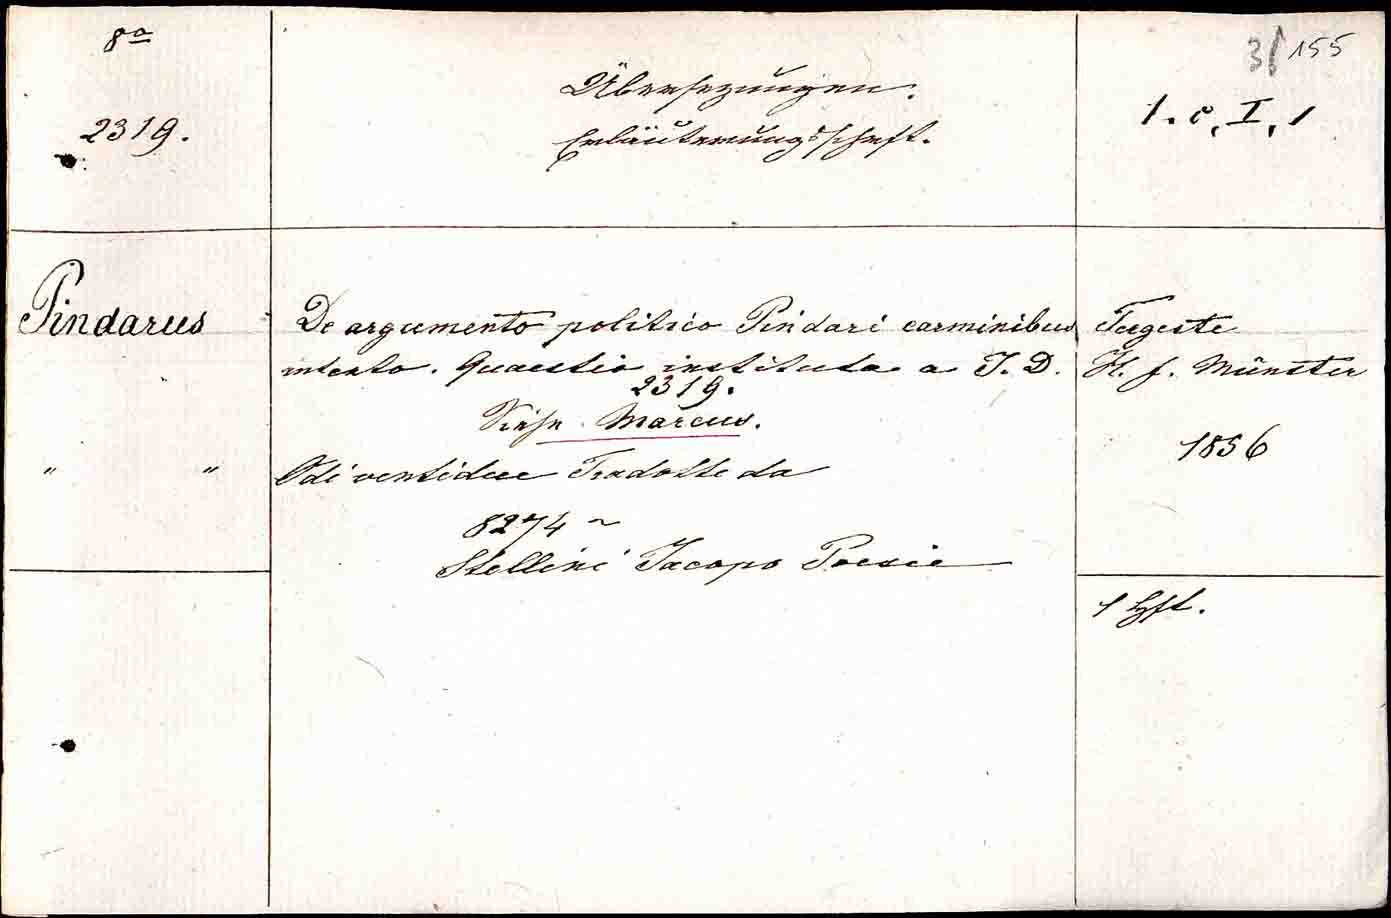 8º
2319.
Übersezungen.
Erläuterungsschrift.
3/155
1. c, I, 1
Pindarus
De argumento politico Pindari carminibus
intexto. Quaestio instituta a J. D.
2319.
Siehe Marcus.
Tergeste
H. f. Münster
1856
" "
Odi ventidue Tradotte da
8274
Stellini Jacopo Poesie
1 Hft.